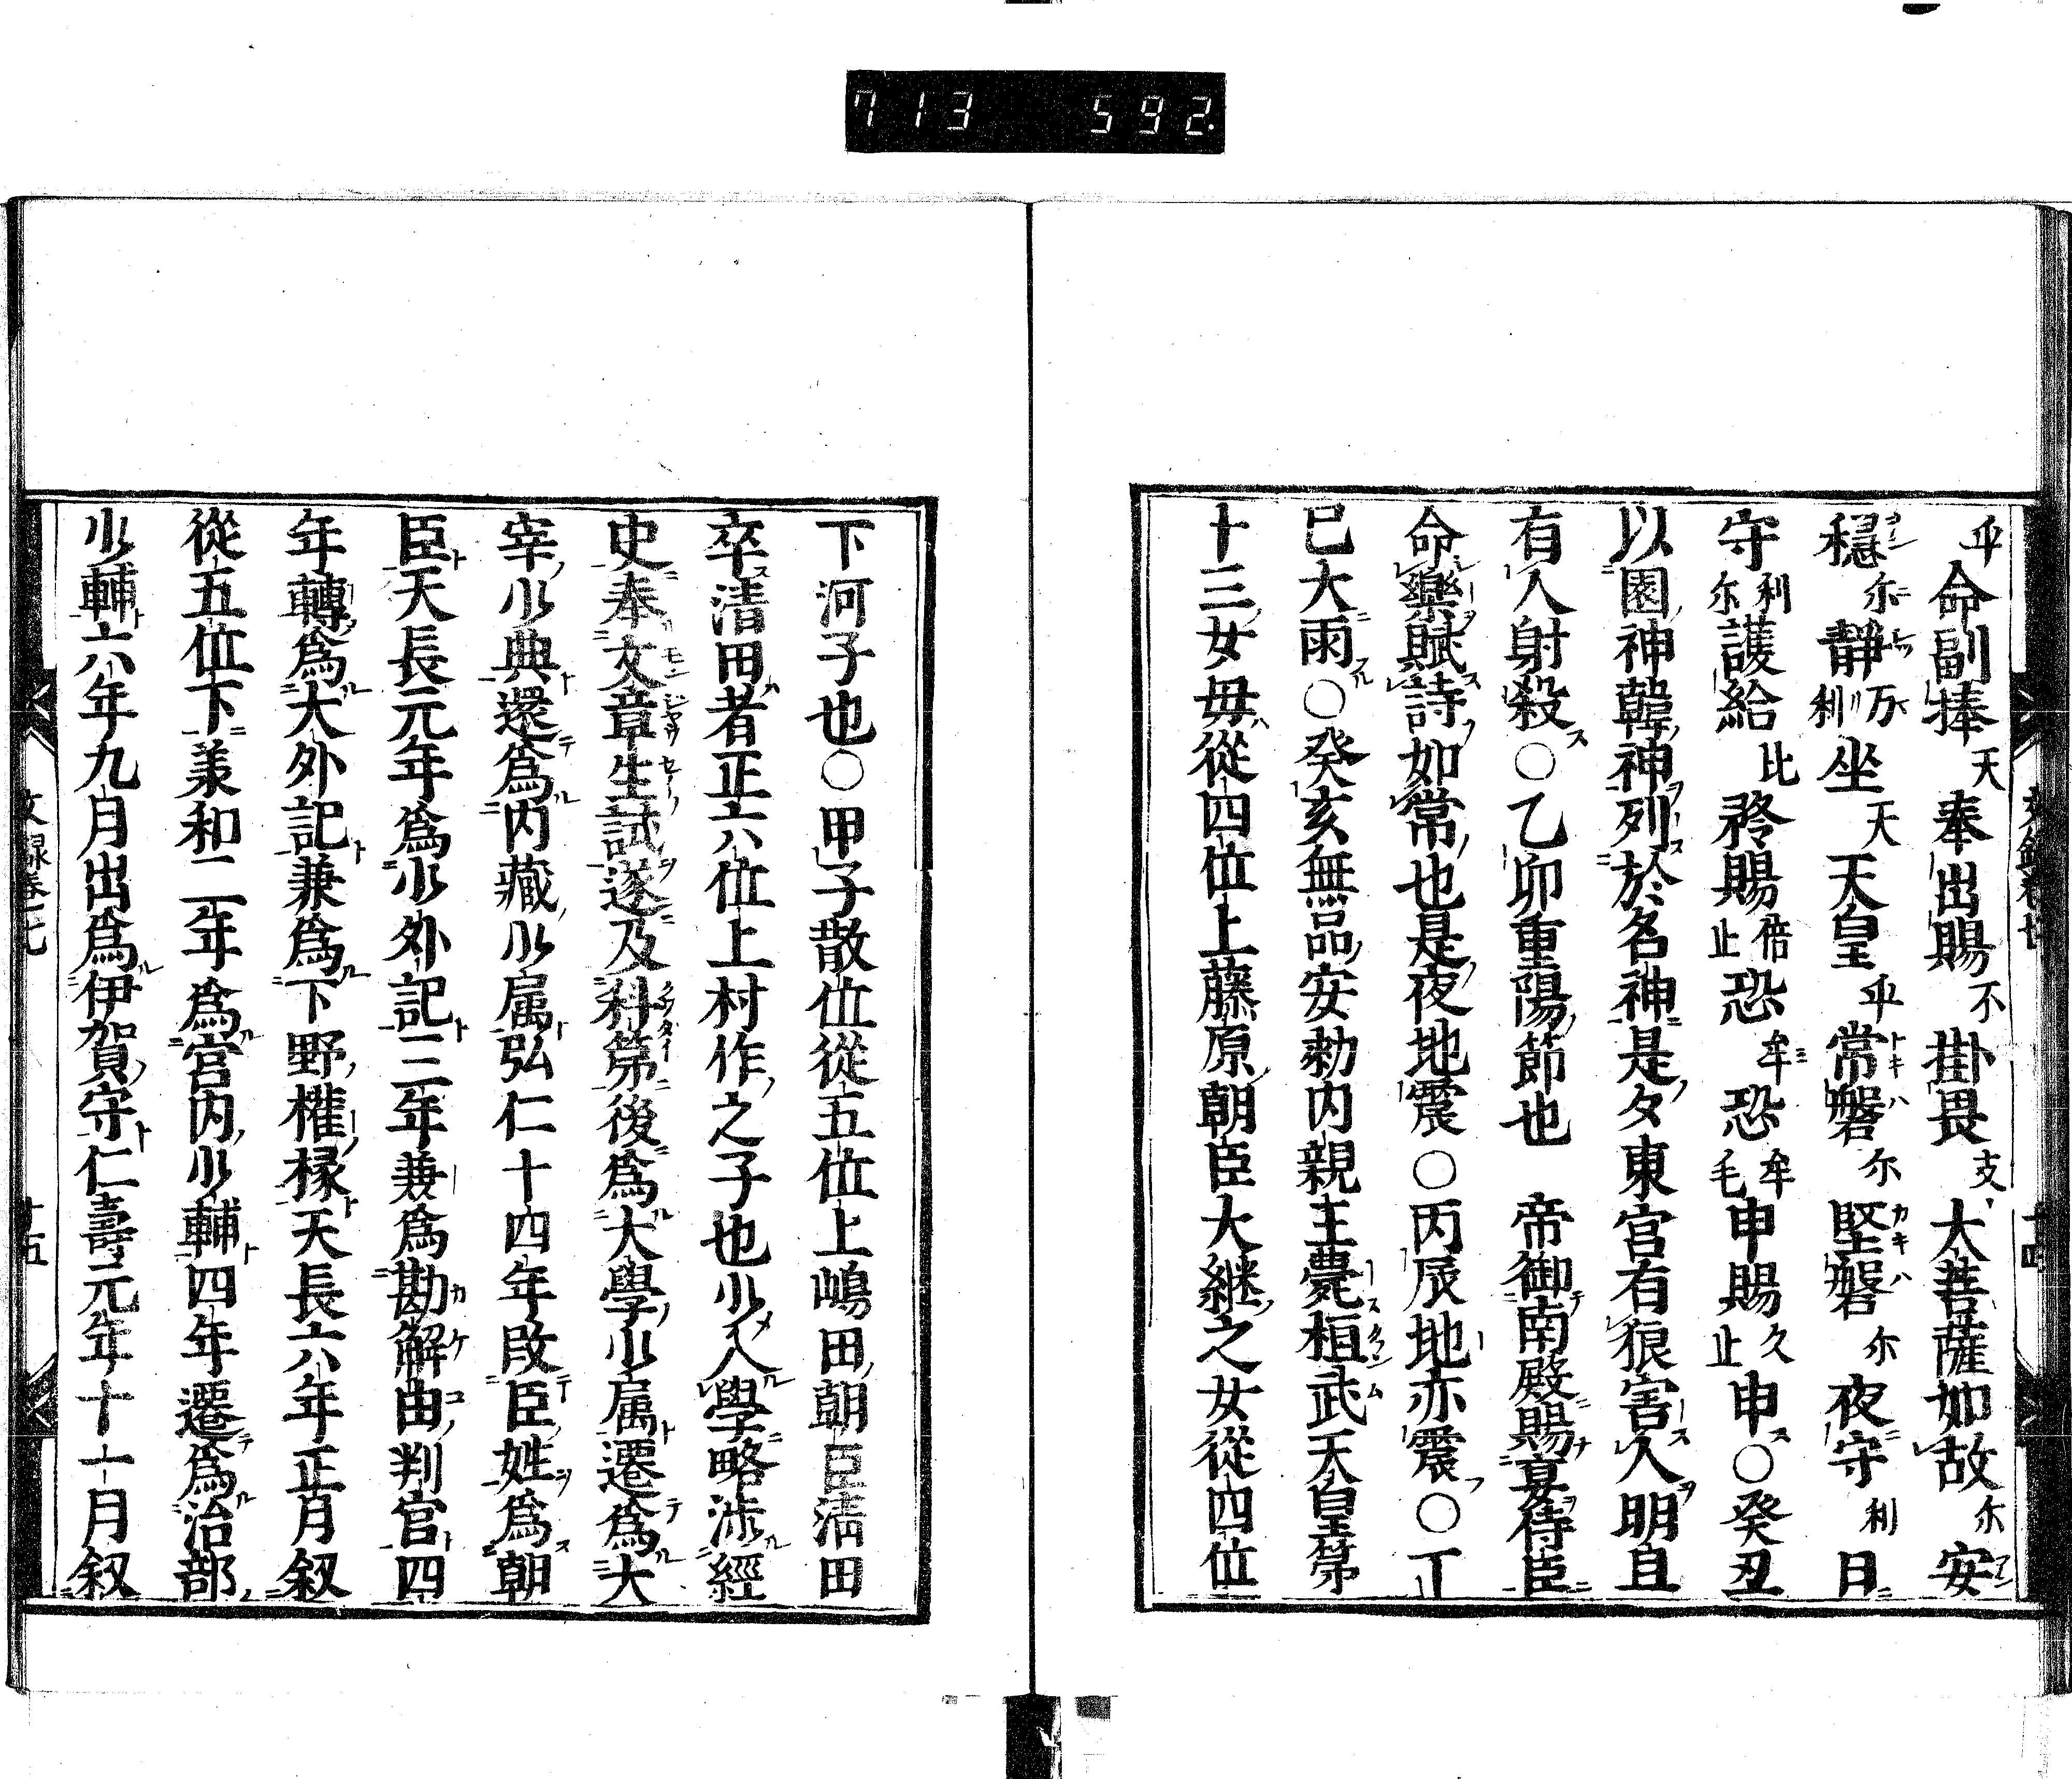 713 592.
乎命副捧天奉出賜不掛畏支大菩薩如故尓安
穏尓静万利坐天天皇乎常磐尓堅磐尓夜守利日
守利尓護給比矜賜倍止恐牟恐牟毛申賜久止申○癸丑
以園神韓神列於名神是夕東宮有狼害人明旦
有人射殺○乙卯重陽節也　帝御南殿賜宴侍臣
命樂賦詩如常也是夜地震○丙辰地亦震○丁
巳大雨○癸亥無品安勅内親王薨桓武天皇第
十三女母從四位上藤原朝臣大継之女從四位
下河子也○甲子散位從五位上嶋田朝臣清田
卒清田者正六位上村作之子也少入學略渉經
史奉文章生試遂及科第後爲大學少属遷爲大
宰少典還爲内藏少属弘仁十四年改臣姓爲朝
臣天長元年爲少外記三年兼爲勘解由判官四
年轉爲大外記兼爲下野權掾天長六年正月叙
從五位下羕和二年爲宮内少輔四年遷爲治部
少輔六年九月出爲伊賀守仁壽元年十一月叙